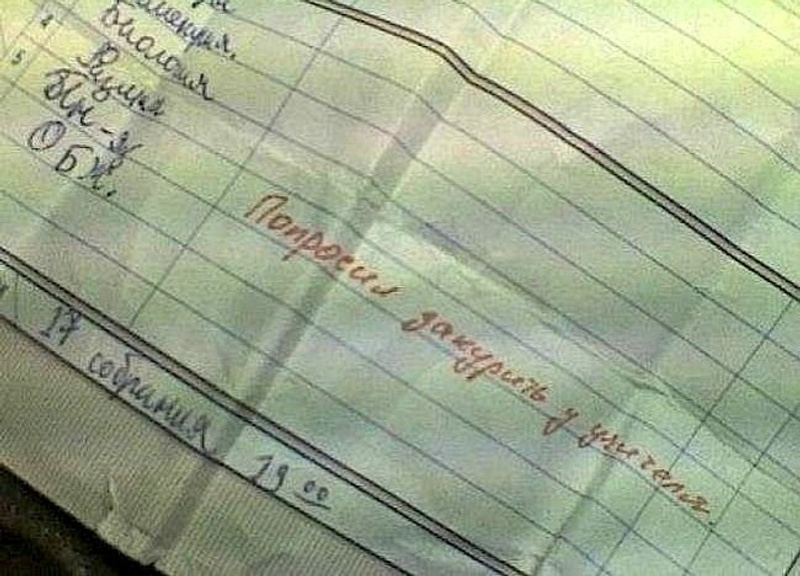 4
Биология
5
Физика
Ин-я
ОБЖ.
Попросил закурить у учителя.
17 собрания 19 00